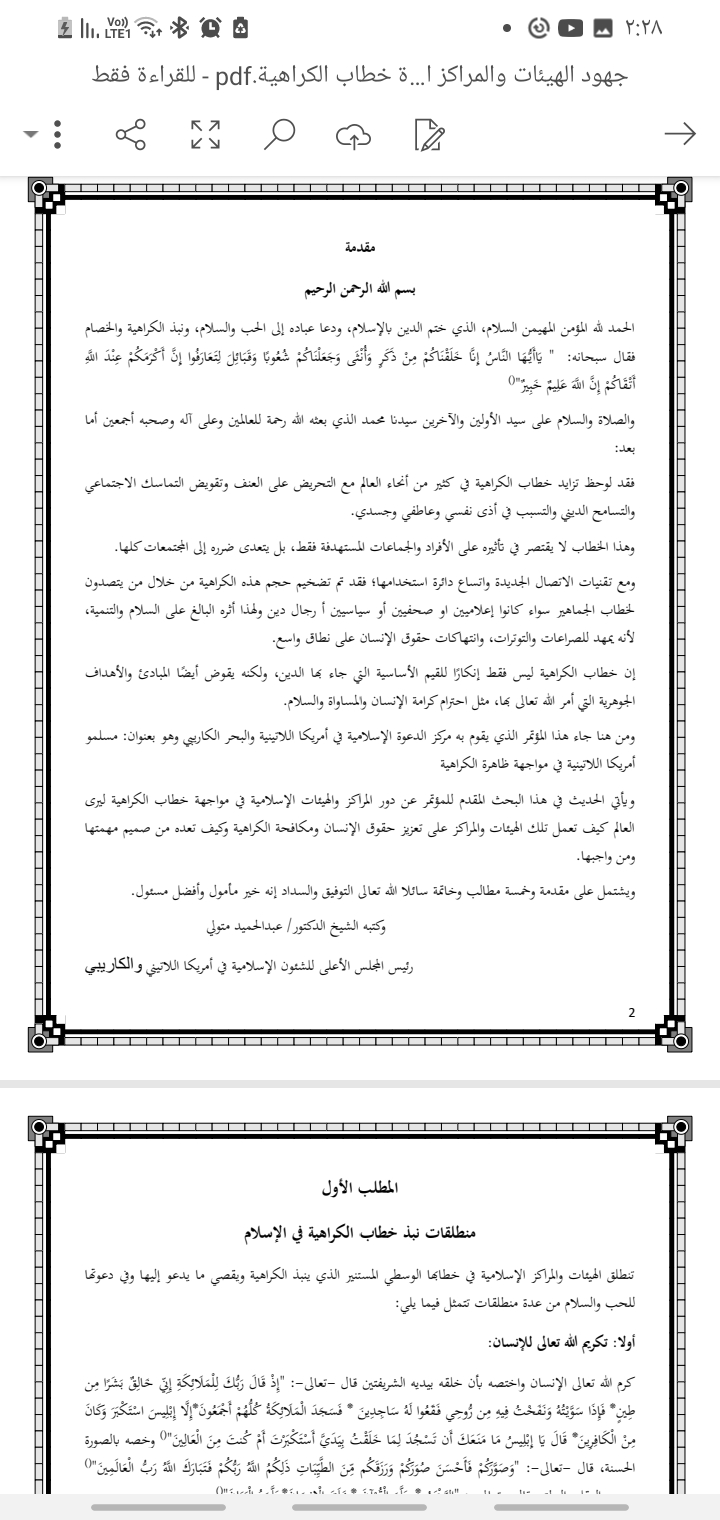 Vo)) LTE1 ٢:٢٨
جهود الهيئات والمراكز ا...ة خطاب الكراهية.pdf - للقراءة فقط
مقدمة
بسم الله الرحمن الرحيم
الحمد لله المؤمن المهيمن السلام، الذي ختم الدين بالإسلام، ودعا عباده إلى الحب والسلام، ونبذ الكراهية والخصام
فقال سبحانه: " يَاأَيُّهَا النَّاسُ إِنَّا خَلَقْنَاكُمْ مِنْ ذَكَرٍ وَأُنْثَى وَجَعَلْنَاكُمْ شُعُوبًا وَقَبَائِلَ لِتَعَارَفُوا إِنَّ أَكْرَمَكُمْ عِنْدَ اللَّهِ
أَتْقَاكُمْ إِنَّ اللَّهَ عَلِيمٌ خَبِيرٌ"()
والصلاة والسلام على سيد الأولين والآخرين سيدنا محمد الذي بعثه الله رحمة للعالمين وعلى آله وصحبه أجمعين أما
بعد:
فقد لوحظ تزايد خطاب الكراهية في كثير من أنحاء العالم مع التحريض على العنف وتقويض التماسك الاجتماعي
والتسامح الديني والتسبب في أذى نفسي وعاطفي وجسدي.
وهذا الخطاب لا يقتصر في تأثيره على الأفراد والجماعات المستهدفة فقط، بل يتعدى ضرره إلى المجتمعات كلها.
ومع تقنيات الاتصال الجديدة واتساع دائرة استخدامها؛ فقد تم تضخيم حجم هذه الكراهية من خلال من يتصدون
لخطاب الجماهير سواء كانوا إعلاميين او صحفيين أو سياسيين أ رجال دين ولهذا أثره البالغ على السلام والتنمية،
لأنه يمهد للصراعات والتوترات، وانتهاكات حقوق الإنسان على نطاق واسع.
إن خطاب الكراهية ليس فقط إنكارًا للقيم الأساسية التي جاء بها الدين، ولكنه يقوض أيضًا المبادئ والأهداف
الجوهرية التي أمر الله تعالى بها، مثل احترام كرامة الإنسان والمساواة والسلام.
ومن هنا جاء هذا المؤتمر الذي يقوم به مركز الدعوة الإسلامية في أمريكا اللاتينية والبحر الكاريبي وهو بعنوان: مسلمو
أمريكا اللاتينية في مواجهة ظاهرة الكراهية
ويأتي الحديث في هذا البحث المقدم للمؤتمر عن دور المراكز والهيئات الإسلامية في مواجهة خطاب الكراهية ليرى
العالم كيف تعمل تلك الهيئات والمراكز على تعزيز حقوق الإنسان ومكافحة الكراهية وكيف تعده من صميم مهمتها
ومن واجبها.
ويشتمل على مقدمة وخمسة مطالب وخاتمة سائلا الله تعالى التوفيق والسداد إنه خير مأمول وأفضل مسئول.
وكتبه الشيخ الدكتور/ عبدالحميد متولي
رئيس المجلس الأعلى للشئون الإسلامية في أمريكا اللاتيني والكاريبي
2
المطلب الأول
منطلقات نبذ خطاب الكراهية في الإسلام
تنطلق الهيئات والمراكز الإسلامية في خطابها الوسطي المستنير الذي ينبذ الكراهية ويقصي ما يدعو إليها وفي دعوتها
للحب والسلام من عدة منطلقات تتمثل فيما يلي:
أولا: تكريم الله تعالى للإنسان:
كرم الله تعالى الإنسان واختصه بأن خلقه بيديه الشريفتين قال –تعالى–: "إِذْ قَالَ رَبُّكَ لِلْمَلَائِكَةِ إِنِّي خَالِقٌ بَشَرًا مِن
طِينٍ* فَإِذَا سَوَّيْتُهُ وَنَفَخْتُ فِيهِ مِن رُّوحِي فَقَعُوا لَهُ سَاجِدِينَ * فَسَجَدَ الْمَلَائِكَةُ كُلُّهُمْ أَجْمَعُونَ*إِلَّا إِبْلِيسَ اسْتَكْبَرَ وَكَانَ
مِنْ الْكَافِرِينَ* قَالَ يَا إِبْلِيسُ مَا مَنَعَكَ أَن تَسْجُدَ لِمَا خَلَقْتُ بِيَدَيَّ أَسْتَكْبَرْتَ أَمْ كُنتَ مِنَ الْعَالِينَ"() وخصه بالصورة
الحسنة، قال –تعالى–: "وَصَوَّرَكُمْ فَأَحْسَنَ صُوَرَكُمْ وَرَزَقَكُم مِّنَ الطَّيِّبَاتِ ذَلِكُمُ اللَّهُ رَبُّكُمْ فَتَبَارَكَ اللَّهُ رَبُّ الْعَالَمِينَ"()